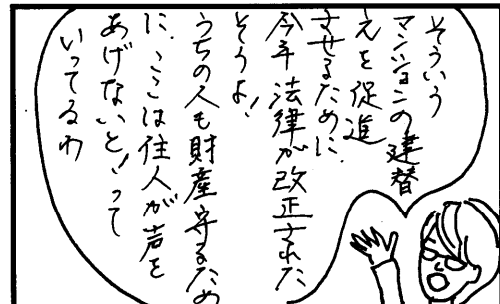 そういう
マンションの建替
えを促進
させるために、
今年法律が改正された
そうよ!
うちの人も財産守るため
に、ここは住人が声を
あげないと!って
いってるわ